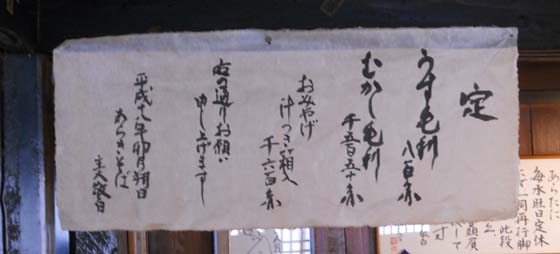 定
うす毛利
八百余
むかし毛利
千五百五十余
おみやげ
汁つき箱入
千六百余
右の通りお願い
申し上げます
平成八年卯月朔日
あらきそば
主人敬白
あらたに
毎水曜日定休